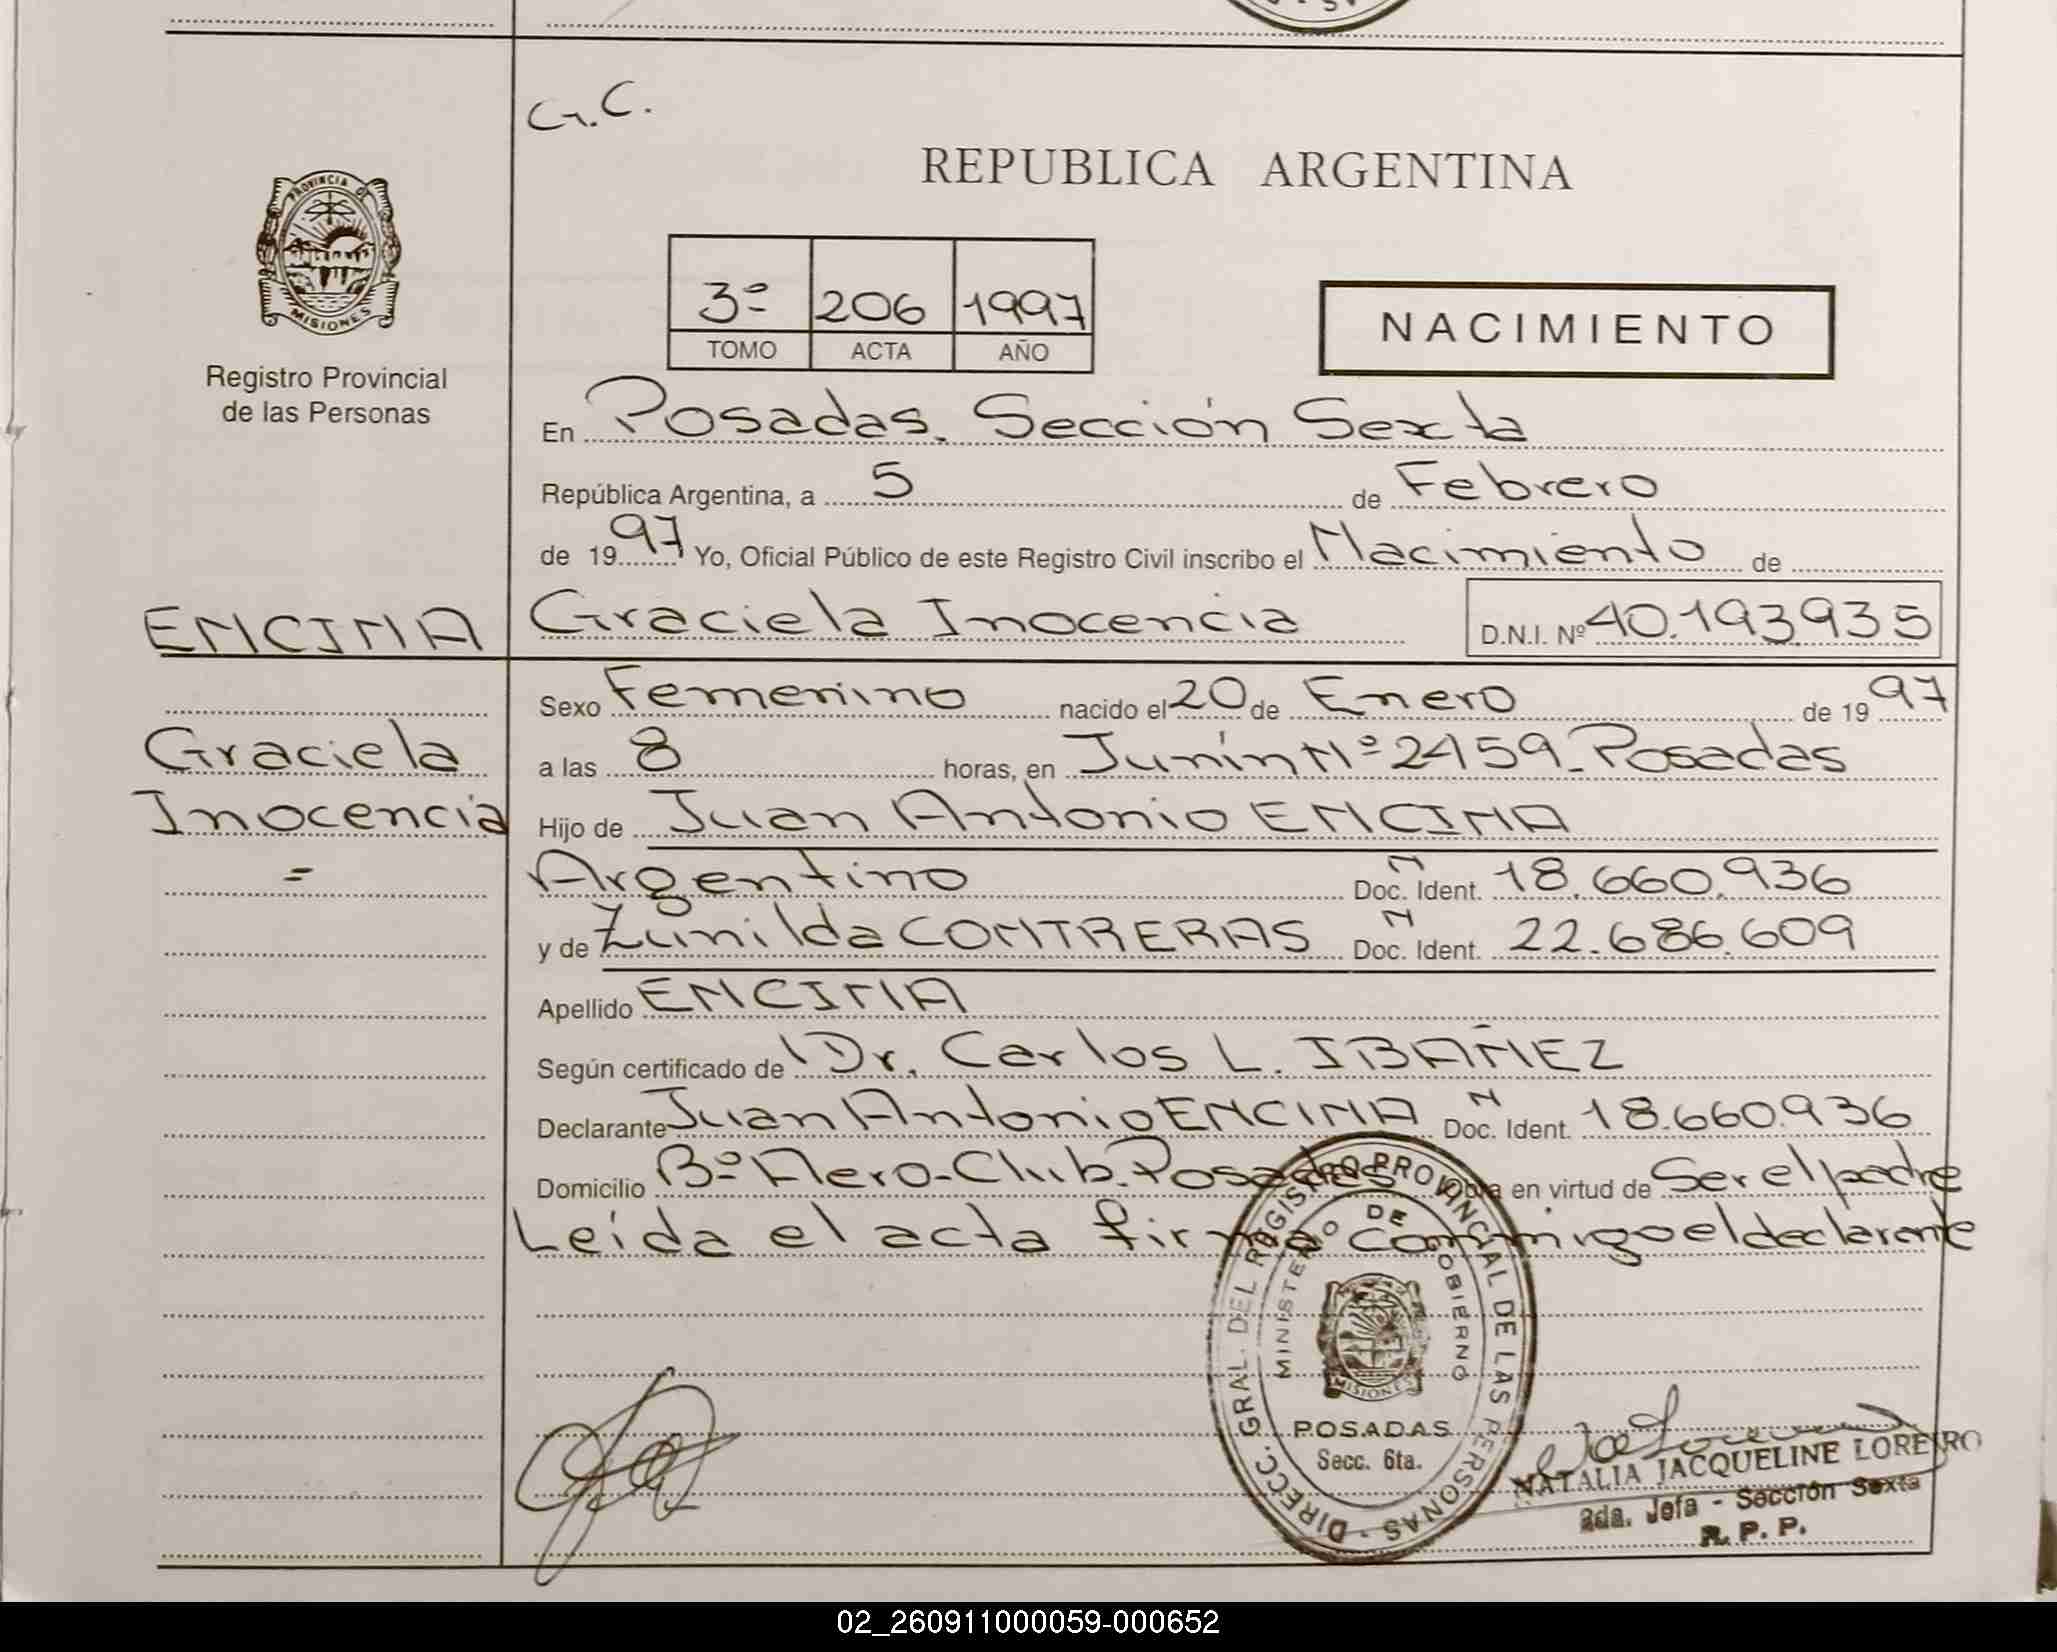 G.C.
REPUBLICA ARGENTINA
PROVINCIA DE
MISIONES
Registro Provincial
de las Personas
3º 206 1997
TOMO ACTA AÑO
NACIMIENTO
En Posadas. Sección Sexta
República Argentina, a 5 de Febrero
de 1997 Yo, Oficial Público de este Registro Civil inscribo el Nacimiento de
ENCINA Graciela Inocencia D.N.I. Nº 40.193.935
Sexo Femenino nacido el 20 de Enero de 1997
Graciela a las 8 horas, en Junín Nº 2459 - Posadas
Inocencia Hijo de Juan Antonio ENCINA
= Argentino Doc. N Ident. 18.660.936
y de Zunilda CONTRERAS Doc. N Ident. 22.686.609
Apellido ENCINA
Según certificado de Dr. Carlos L. IBAÑEZ
Declarante Juan Antonio ENCINA Doc. N Ident. 18.660.936
Domicilio Bº Aero-Club. Posadas Obra en virtud de Ser el padre
Leída el acta firma conmigo el declarante
DIRECC. GRAL. DEL REGISTRO PROVINCIAL DE LAS PERSONAS -
MINISTERIO DE GOBIERNO
MISIONES
POSADAS
Secc. 6ta.
NATALIA JACQUELINE LOREIRO
2da. Jefa - Sección Sexta
R. P. P.
02_260911000059-000652